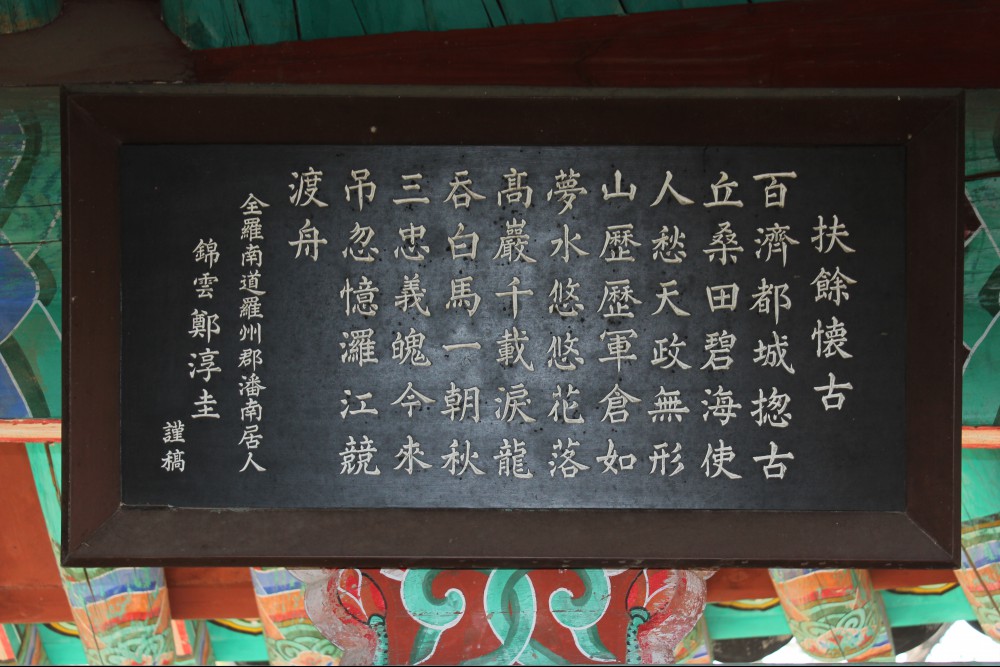 扶餘懷古
百濟都城揔古
丘桑田碧海使
人愁天政無形
山歷歷軍倉如
夢水悠悠花落
高巖千載淚龍
吞白馬一朝秋
三忠義魄今來
吊忽憶灑江競
渡舟
全羅南道羅州郡潘南居人
錦雲鄭淳圭
謹稿